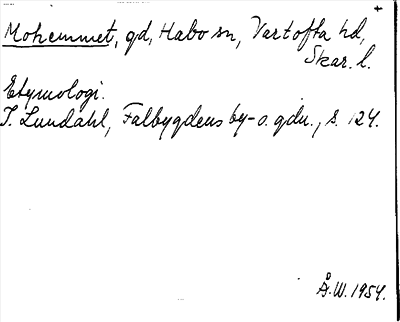 Mohemmet, gd, Habo sn, Vartofta hd,
Skar. l.
Etymologi.
I. Lundahl, Falbygdens by- o. gdn., s. 124.
Å.W. 1954.